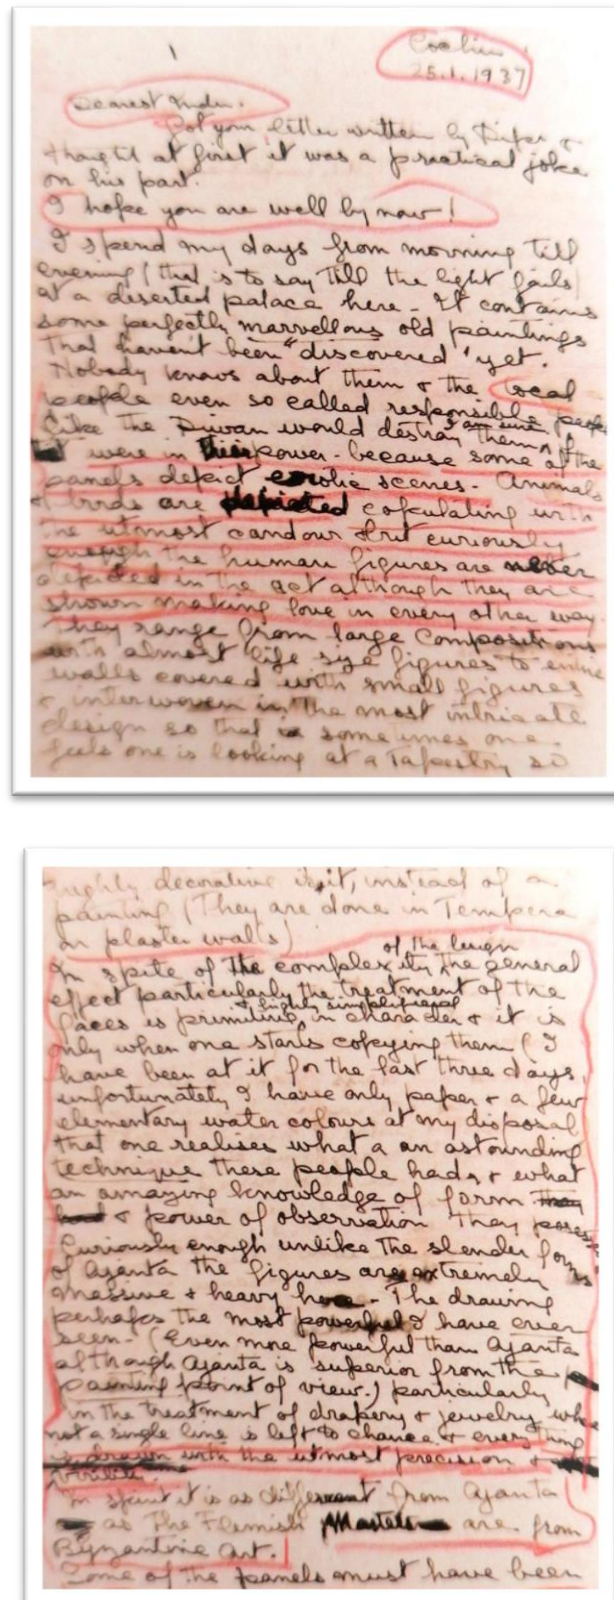 1
Cochin
25.1.1937
Dearest Indu.
Got your letter written by &
thought at first it was a practical joke
on his part.
I hope you are well by now!
I spend my days from morning till
evening (that is to say till the light fails)
at a deserted palace here - It contains
some perfectly marvellous old paintings
That haven't been "discovered" yet.
Nobody knows about them & the local
people even so called responsible people
like the Diwan would destroy them I am sure if
it were in their power - because some of the
panels depict erotic scenes - Animals
& birds are depicted copulating with
the utmost candour & but curiously
enough the human figures are never
depicted in the act although they are
shown making love in every other way.
They range from large compositions
with almost life size figures to entire
walls covered with small figures
& interwoven in the most intricate
design so that sometimes one
feels one is looking at a Tapestry so
highly decorative is it, instead of a
painting (They are done in Tempera
on plaster walls)
In spite of the complexity of the design the general
effect particularly the treatment of the
faces is primitive & highly simplified in character & it is
only when one starts copying them (I
have been at it for the last three days,
unfortunately I have only paper & a few
elementary water colours at my disposal
that one realises what a an astounding
technique these people had, & what
an amazing knowledge of form they
had & power of observation They possess
Curiously enough unlike the slender forms
of Ajanta the figures are extremely
massive & heavy here - The drawing
perhaps the most powerful I have ever
seen - (Even more powerful than Ajanta
although Ajanta is superior from the
painting point of view.) particularly
in the treatment of drapery & jewelry where
not a single line is left to chance & every thing
is drawn with the utmost precision &
virility.
In spirit it is as different from Ajanta
as The Flemish Masters are from
Byzantine Art.
Some of the panels must have been